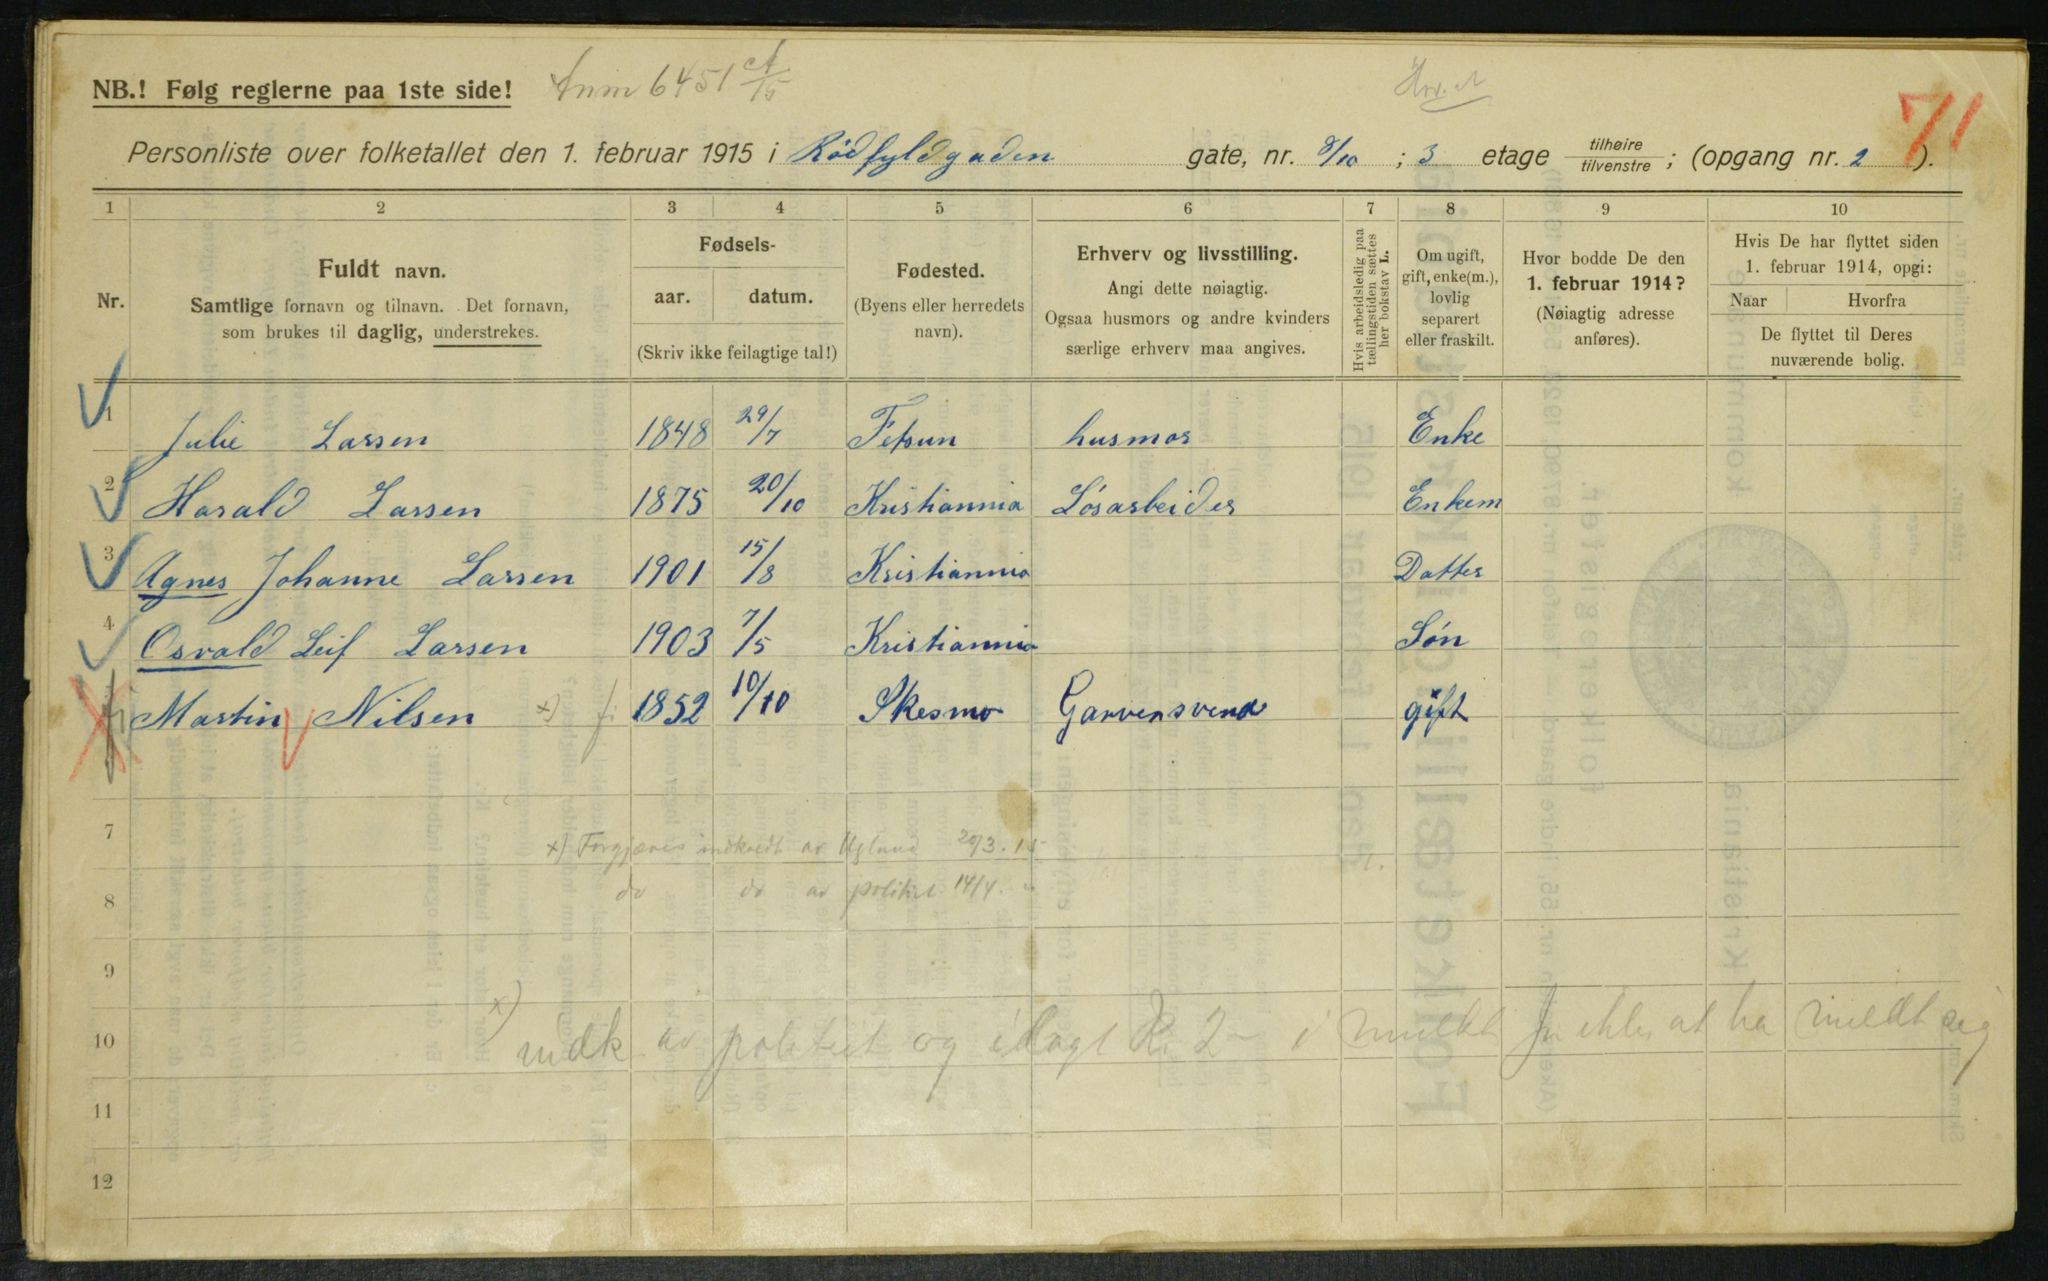 NB.! Følg reglerne paa 1ste side! 6451
71
Personliste over folketallet den 1. februar 1915 i Rødfyldgaden gate, nr. 8/10 ; 3 etage tilhøire tilvenstre ; (opgang nr. 2 ).
1 2 3 4 5 6 7 8 9 10
Nr.
Fuldt navn.
Samtlige fornavn og tilnavn. Det fornavn,
som brukes til daglig, understrekes.
Fødsels-
aar. datum.
(Skriv ikke feilagtige tal!)
Fødested.
(Byens eller herredets
navn).
Erhverv og livsstilling.
Angi dette nøiagtig.
Ogsaa husmors og andre kvinders
særlige erhverv maa angives.
Hvis arbeidsledig paa
tællingstiden sættes
her bokstav L.
Om ugift,
gift, enke(m.),
lovlig
separert
eller fraskilt.
Hvor bodde De den
1. februar 1914?
(Nøiagtig adresse
anføres).
Hvis De har flyttet siden
1. februar 1914, opgi:
Naar Hvorfra
De flyttet til Deres
nuværende bolig.
1 Julie Larsen 1848 29/7 Fetsun husmor Enke
2 Harald Larsen 1875 20/10 Kristiannia Løsarbeider Enkem
3 Agnes Johanne Larsen 1901 15/8 Kristiannia Datter
4 Osvald Leif Larsen 1903 7/5 Kristiannia Søn
Martin Nilsen x) 1852 10/10 Skesmo Garversvend gift
7
x) Forgjæves indkaldt av 20/3.15
8 do do av politiet 14/4 "
9
x)
10 indk av politiet og ilagt Kr 2- i mulkt for ikke at ha meldt sig
11
12